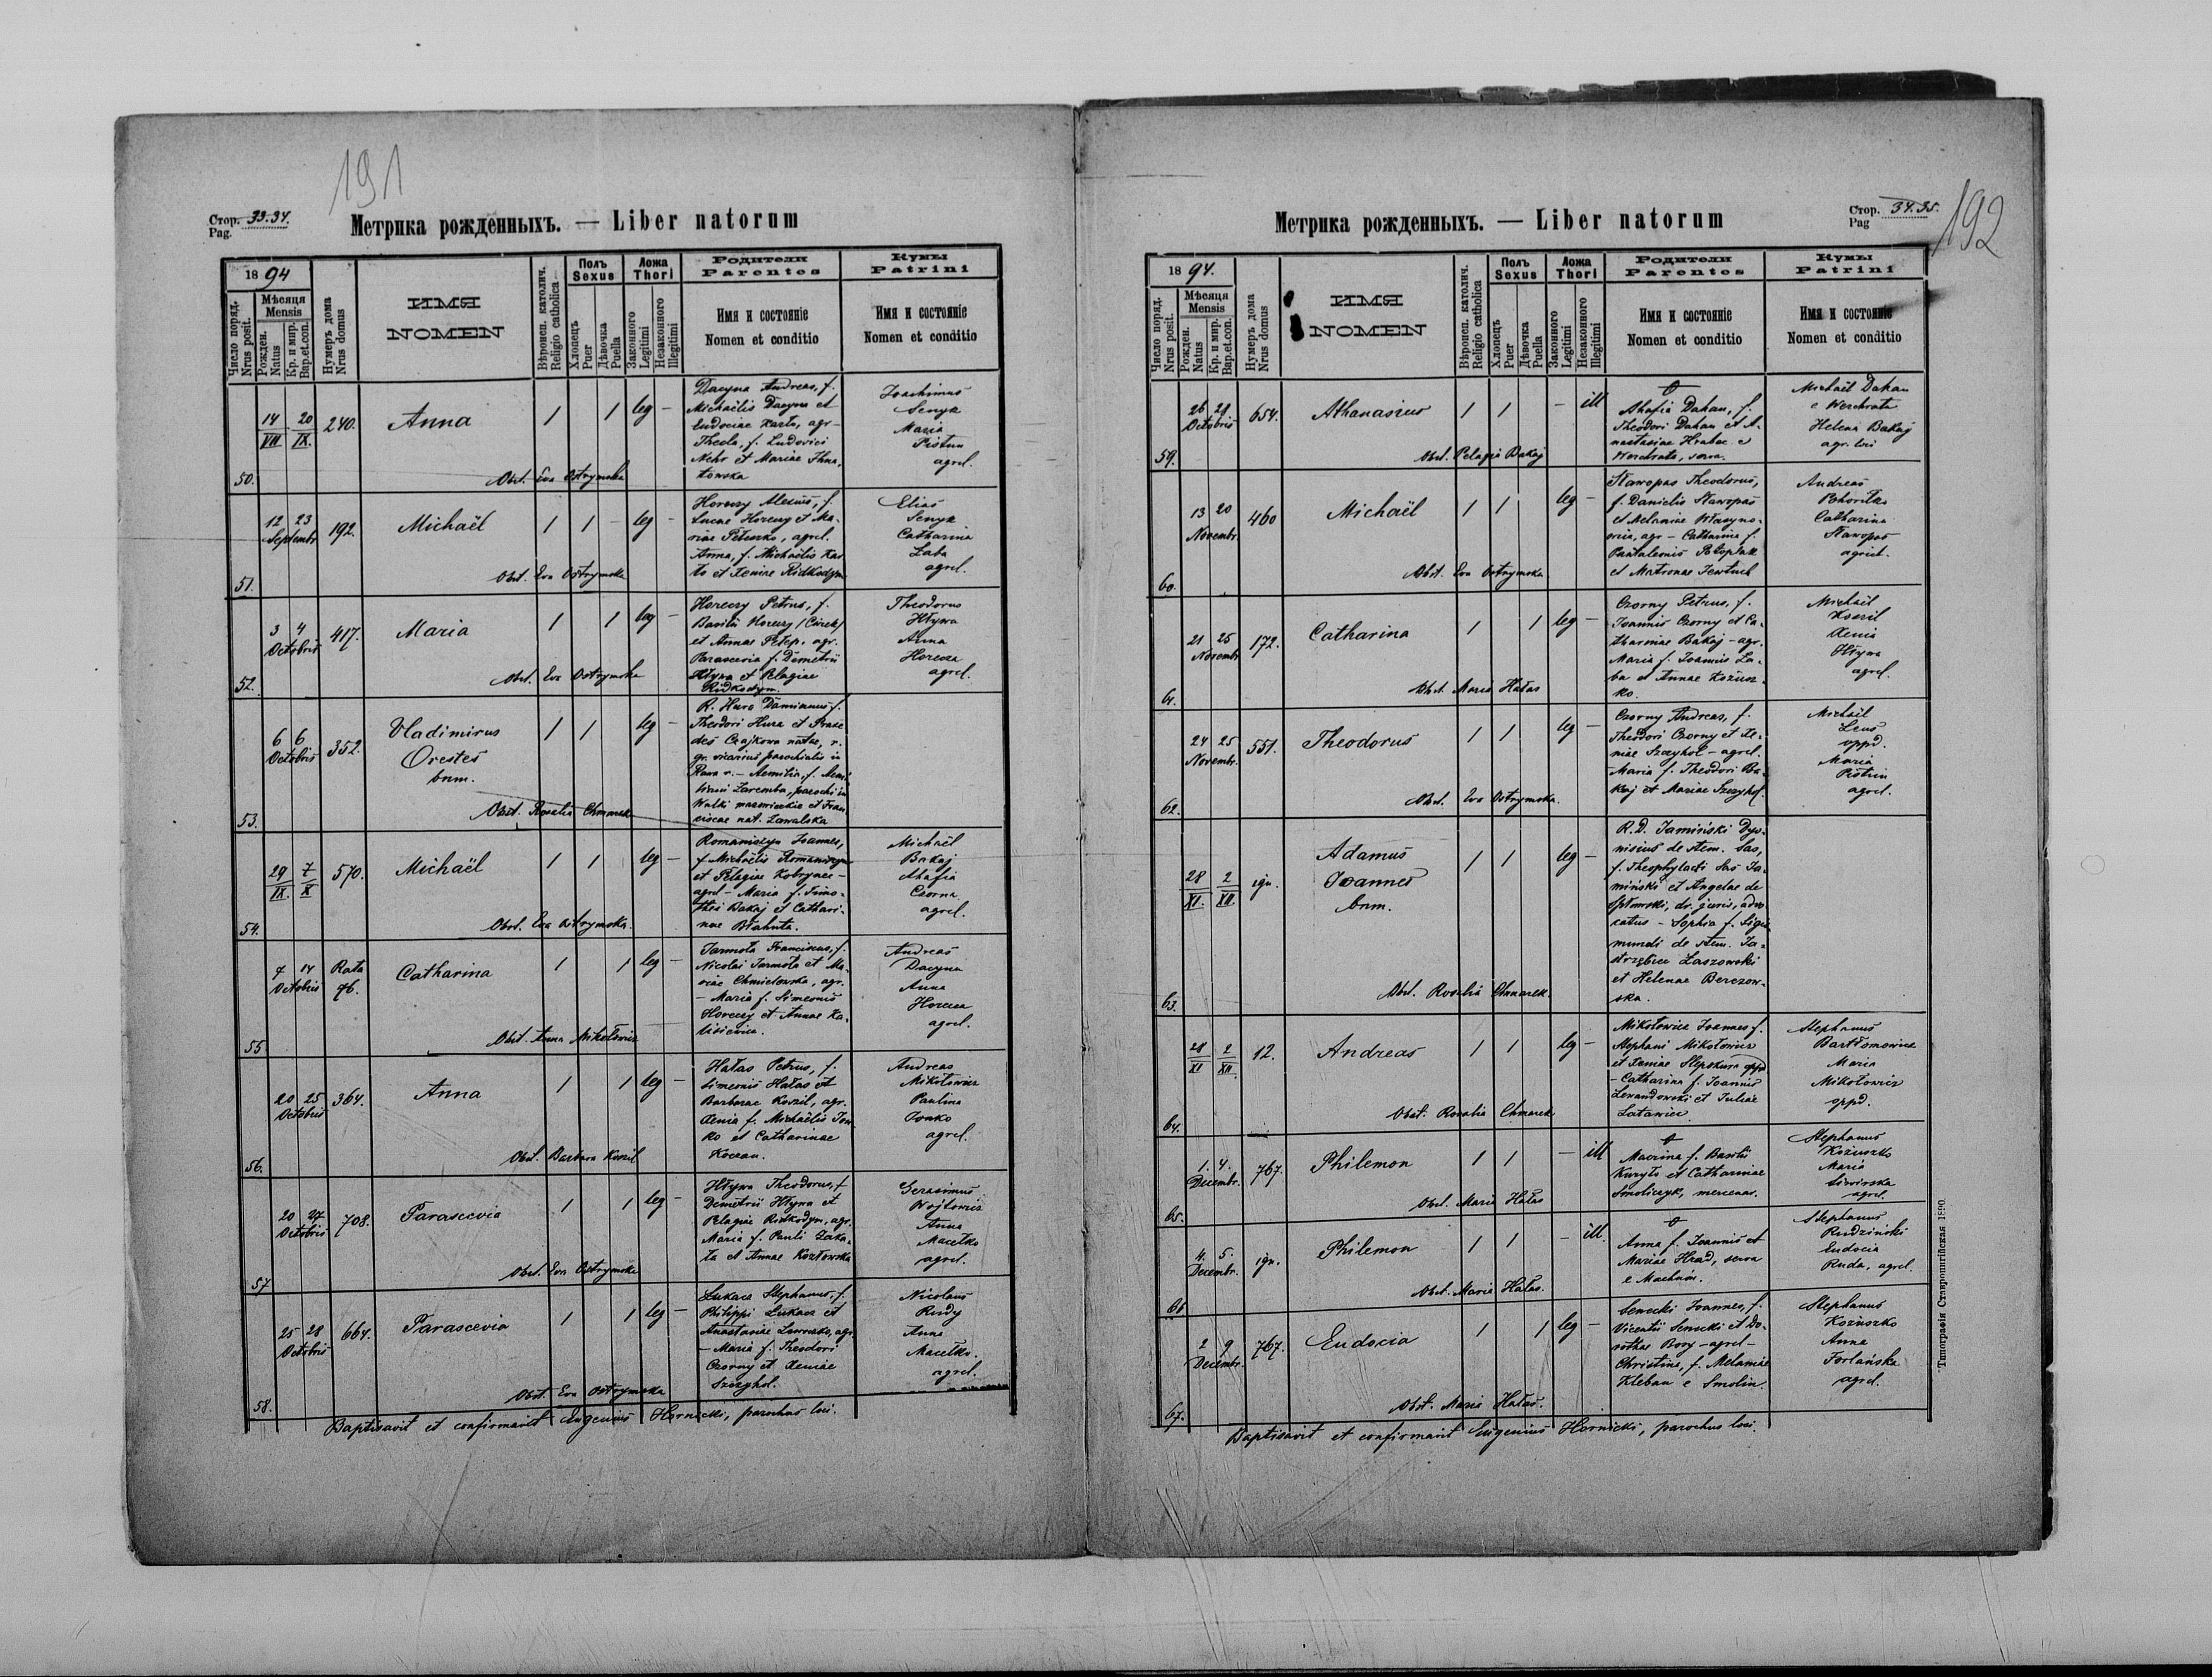 191
Стор. 33.34.
Pag.
Метрика рожденныхъ. — Liber natorum
1894
Число поряд.
Nrus posit.
Мѣсяця
Mensis
Рожден.
Natus
Кр. и мир.
Bap.et.con.
Нумеръ дома
Nrus domus
ИМЯ
NOMEN
Вѣроисп. католич.
Religio catholica
Полъ
Sexus
Хлопецъ
Puer
Дѣвочка
Puella
Ложа
Thori
Законного
Legitimi
Незаконного
Illegitimi
Родители
Parentes
Имя и состояніе
Nomen et conditio
Кумы
Patrini
Имя и состояніе
Nomen et conditio
50.
14 20
VII IX.
240.
Anna
1 1 leg -
Obst. Eva Ostrymska
Dacyna Andreas, f.
Michaëlis Dacyna et
Eudociae Karto, agr-
Thecla, f. Ludovici
Nehr et Mariae
Joachimus
Senyk
Maria
Pistun
agrcl.
51.
12 23
Septembr.
192.
Michaël
1 1 - leg -
Obst. Eva Ostrymska
Horeczy Alexius, f.
Lucae Horeczy et Ma-
riae Peteszko, agrcl.
Anna, f. Michaëlis Kar
to et Xeniae Ridkodym
Elias
Senyk
Catharina
Laba
agrcl.
52.
3 4
Octobris
417.
Maria
1 1 leg -
Obst. Eva Ostrymska
Horeczy Petrus, f.
Basilii Horeczy
et Annae Petep. agr.
Parascevia f. Demetrii
Hływa et Pelagiae
Ridkodym.
Theodorus
Hływa
Anna
Horecza
agrcl.
53.
6 6
Octobris
352.
Vladimirus
Orestes
bnm.
1 1 leg -
Obst. Rosalia Chmarek
R. Hura Damianus f.
Theodori Hura et Praxe
des Czajkowa natae, r.
gr. vicarius parochialis in
Rawa r. - Aemilia, f. Aemi
liani Zaremba, parochi in
Wulki mazowieckie et Fran
ciscae nat. Zawalska
54.
29 7
IX. X
570.
Michaël
1 1 leg -
Obst. Eva Ostrymska.
Romaniszyn Joannes,
f. Michaëlis Romaniszyn
et Pelagiae Kobrynec-
agrcl- Maria f. Timo-
thei Bakaj et Cathari-
nae Błahuta.
Michaël
Bakaj
Ahafia
Czorna
agrcl.
55
7 14
Octobris
Rata
76.
Catharina
1 1 leg -
Obst. Anna Mikołowicz
Jarmoła Franciscus, f.
Nicolai Jarmoła et Ma-
riae Chmielowska, agr.
- Maria f. Simeonis
Horeczy et Annae Ka-
lisiewicz.
Andreas
Dacyna
Anna
Horecza
agrcl.
56.
20 25
Octobris
364.
Anna
1 1 leg -
Obst. Barbara Koszil
Hałas Petrus, f.
Simeonis Hałas et
Barbarae Koszil, agr.
Xenia f. Michaëlis Iwa
ko et Catharinae
Koczan.
Andreas
Mikołowicz
Paulina
Iwako
agrcl.
57
20 27
Octobris
708.
Parascevia
1 1 leg -
Obst. Eva Ostrymska
Hływa Theodorus, f.
Demetrii Hływa et
Pelagiae Ridkodym, agr.
Maria f. Pauli Zaka-
la et Annae Kozłowska
Gerasimus
Wojtowicz
Anna
Macełko
agrcl.
58.
25 28
Octobris
664.
Parascevia
1 1 leg -
Obst. Eva Ostrymska
Łukacz Stephanus, f.
Philippi Łukacz et
Anastasiae, agr.
- Maria f. Theodori
Czorny et Xeniae
Szczyhol.
Nicolaus
Rudy
Anna
Macełko.
agrcl.
Baptisavit et confirmavit Eugenius Hornicki, parochus loci.
192
Стор. 34.35.
Pag
Метрика рожденныхъ. — Liber natorum
1894.
Число поряд.
Nrus posit.
Мѣсяця
Mensis
Рожден.
Natus
Кр. и мир.
Bap.et.con.
Нумеръ дома
Nrus domus
ИМЯ
NOMEN
Вѣроисп. католич.
Religio catholica
Полъ
Sexus
Хлопецъ
Puer
Дѣвочка
Puella
Ложа
Thori
Законного
Legitimi
Незаконного
Illegitimi
Родители
Parentes
Имя и состояніе
Nomen et conditio
Кумы
Patrini
Имя и состояніе
Nomen et conditio
59.
26 28
Octobris
654.
Athanasius
1 1 - ill
Obst. Pelagia Bakaj
Ahafia Dahan, f.
Theodori Dahan et A-
nastasiae Hrabec e
Werchrata, serva.
Michaël Dahan
e Werchrata
Helena Bakaj
agr. loci
60.
13 20
Novembr.
460
Michaël
1 1 leg -
Obst. Eva Ostrymska
Stawopas Theodorus,
f. Danielis Stawopas
et Melaniae
agr - Catharina f.
Pantaleonis
et Matronae Jewtuch
Andreas
Pohorilec
Catharina
Stawopas
agricl.
61.
21 25
Novembr.
172.
Catharina
1 1 leg -
Obst. Maria Hałas
Czorny Petrus, f.
Joannis Czorny et Ca-
tharinae Bakaj - agr.
Maria f. Joannis La-
ba et Annae Kozusz-
ko.
Michaël
Koszil
Xenia
Hływa
agrcl.
62.
24 25
Novembr.
551.
Theodorus
1 1 leg -
Obst. Eva Ostrymska.
Czorny Andreas, f.
Theodori Czorny et Xe-
niae Szczyhol - agrcl.
Maria f. Theodori Ba-
kaj et Mariae Szczyhol.
Michaël
Leus
oppd.
Maria
Pistun
agrcl.
63.
28 2
XI. XII.
ign.
Adamus
Joannes
bnm.
1 1 leg -
Obst. Rosalia Chmarek.
R. D. Jamiński Dyo-
nisius de stem. Sas,
f. Theophylacti Sas Ja-
miński et Angelae de
dr. juris, advo-
catus - Sophia f. Sigis-
mundi de stem. Ja-
strzębiec Łaszowski
et Helenae Berezow-
ska.
64.
28 2
XI XII.
12.
Andreas
1 1 leg -
Obst. Rosalia Chmarek
Mikołowicz Joannes f.
Stephani Mikołowicz
et Xeniae Slepokura oppd
- Catharina f. Joannis
Lewandowski et Juliae
Latawiec.
Stephanus
Bartłomowicz
Maria
Mikołowicz
oppd.
65.
1. 4.
Decembr.
767.
Philemon
1 1 - ill
Obst. Maria Hałas
Macrina f. Basilii
Kuryło et Catharinae
Smoliczyk, mercenar.
Stephanus
Kozuszko
Maria
agrcl.
66
4. 5.
Decembr.
ign.
Philemon
1 1 - ill.
Obst. Maria Hałas.
Anna f. Joannis et
Mariae Hrad, serva
e Machnów.
Stephanus
Rudziński
Eudocia
Ruda, agrcl.
67.
2 9
Decembr.
767.
Eudocia
1 1 leg -
Obst. Maria Hałas.
Senecki Joannes, f.
Vicentii Senecki et Do-
rothae Bory - agrcl -
Christina, f. Melaniae
Kleban e Smolin.
Stephanus
Kozuszko
Anna
Forlańska
agrcl.
Baptisavit et confirmavit Eugenius Hornicki, parochus loci.
Типографія Ставропигійская 1890.